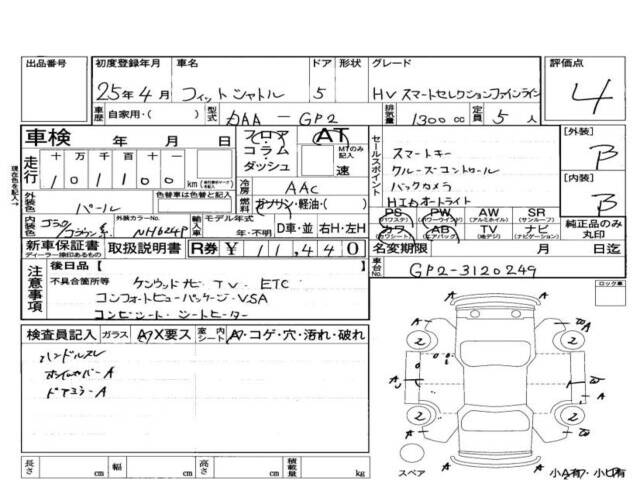 出品番号 初度登録年月 車名 ドア 形状 グレード 評価点
25年4月 フィットシャトル 5 HV スマートセレクションファインライン 4
車歴 自家用・( ) 型式 DAA-GP2 排気量 1300cc 定員 5人
車検 年 月 日 フロア AT セールスポイント [外装]
走行 十 万 千 百 十 一 コラム・ダッシュ MTのみ記入 速 スマートキー B
101100 km 冷房 AAC クルーズコントロール
現在色を記入→ 外装色 パール 色替車は色替と記入 燃料 ガソリン・軽油・( ) バックカメラ [内装]
HIDオートライト B
内装色 外装カラーNo. NH624P 輸入車 モデル年式 年・不明 D車・並 右H・左H
PS (パワステ) PW (パワーウインドー) AW (アルミホイル) SR (サンルーフ)
カワ (カワシート) AB (エアバック) TV (地デジ) ナビ (ナビゲーション) 純正品のみ丸印
新車保証書 ディーラー捺印あるもの 取扱説明書 R券 ¥11,440 名変期限 月 日迄
注意事項 後日品【 車台No. GP2-3120249
不具合箇所等 ケンウッドナビ TV ETC ロック車
コンフォートビューパッケージ・VSA
コンビシート・シートヒーター
検査員記入 ガラス A・X要ス 室内シート A・コゲ・穴・汚れ・破れ
ハンドルスレ
ホイールカバーA
ドアミラーA
A A
2 2
A
2 2
A
スペア A 小A有 小B有
長さ cm 幅 cm 高さ cm 積載量 kg